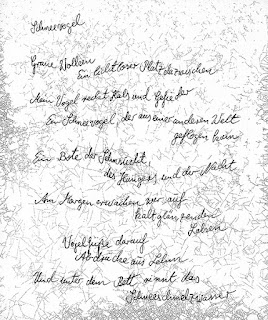 Schneevogel
Graue Wolken
Ein lichtloser Platz dazwischen
Mein Vogel reckt Hals und Gefieder
Ein Schneevogel, der aus einer anderen Welt
geflogen kam
Ein Bote der Sehnsucht,
des Hungers und der Nacht
Am Morgen erwachen wir auf
kaltglänzenden
Laken
Vogelfüße darauf
Abdrücke aus Lehm
Und unter dem Bett rinnt das
Schneeschmelzwasser